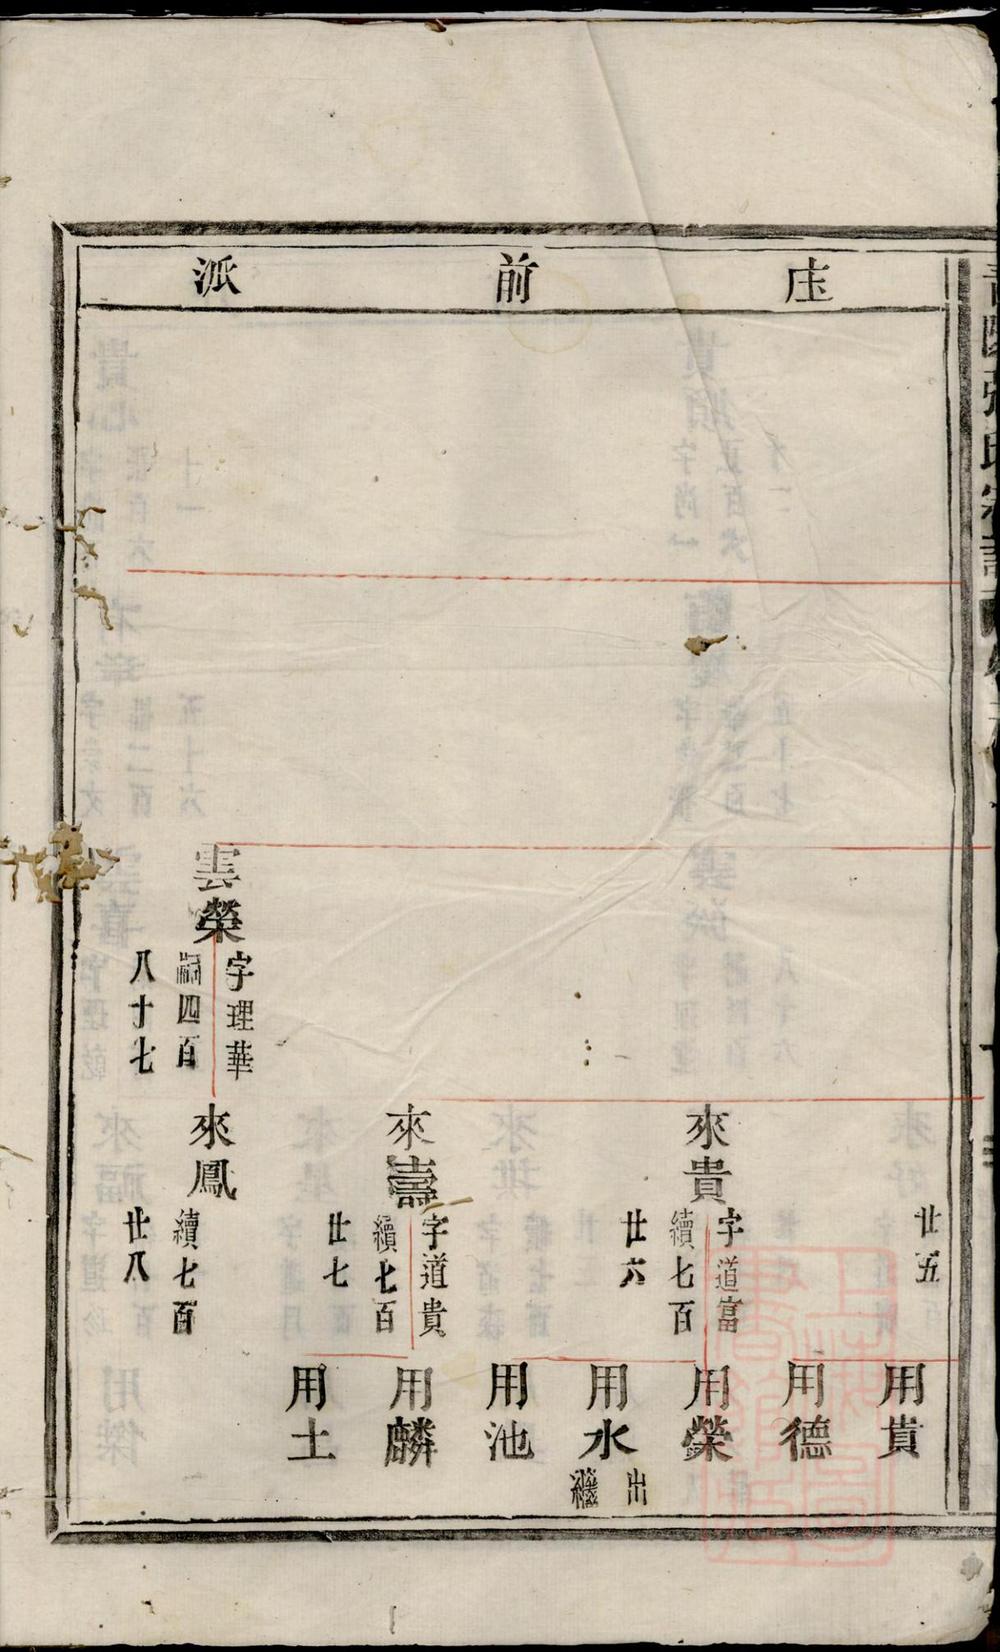 庄前派
廿五
用貴
用德
來貴
字道富
續七百
廿六
用榮
用水
出繼
用池
來壽
字道貴
續七百
廿七
用麟
用土
雲榮
字理華
嗣四百
八十七
來鳳
續七百
廿八